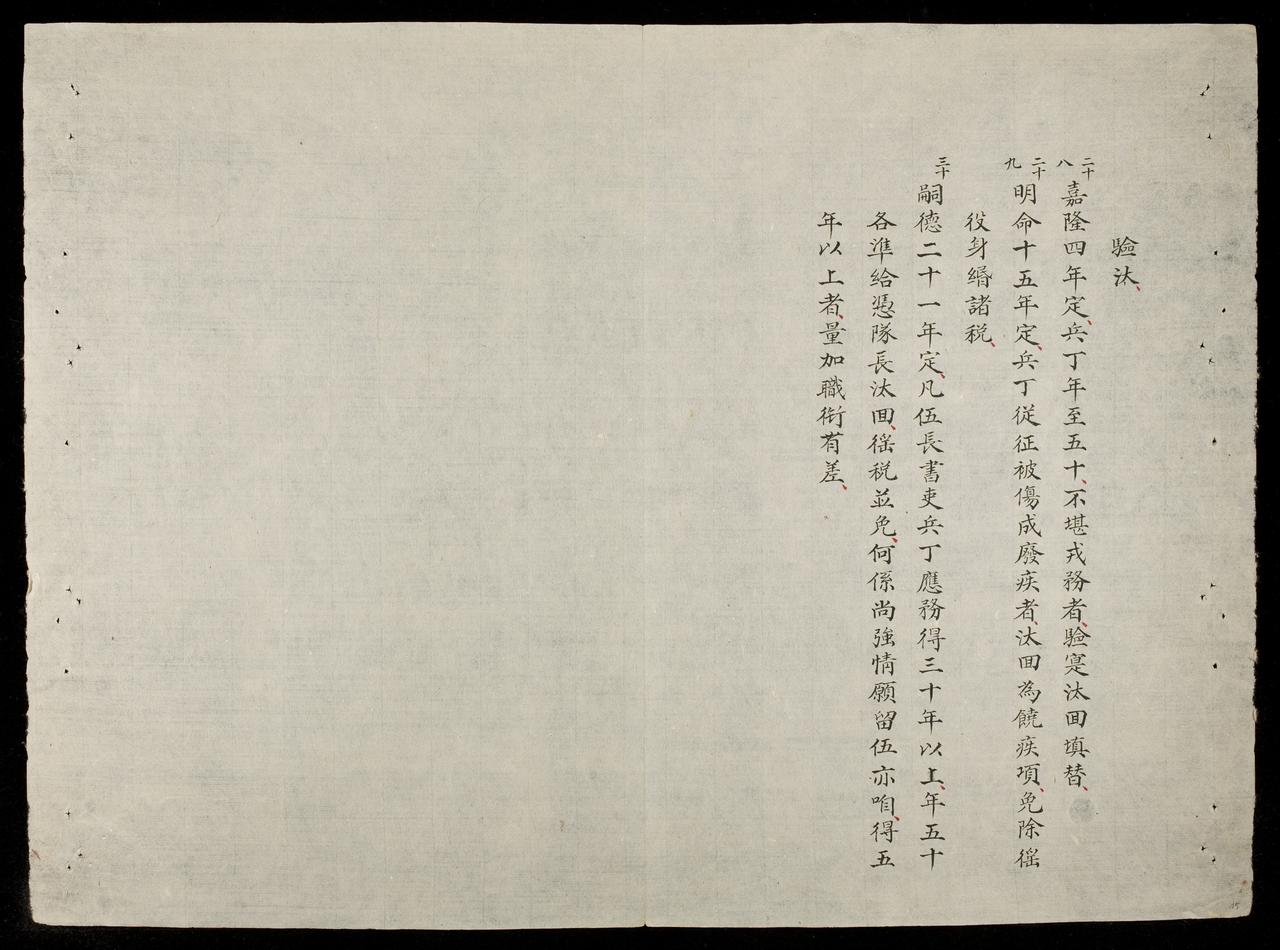 驗汰、
二十八 嘉隆四年定、兵丁年至五十、不堪戎務者、驗寔汰囬填替、
二十九 明命十五年定、兵丁従征被傷成廢疾者、汰囬為饒疾項、免除徭
役身緡諸税、
三十 嗣德二十一年定、凡伍長書吏兵丁應務得三十年以上、年五十
各準給憑隊長汰囬、徭税並免、何係尚強情願留伍亦咱、得五
年以上者、量加職銜有差、
15